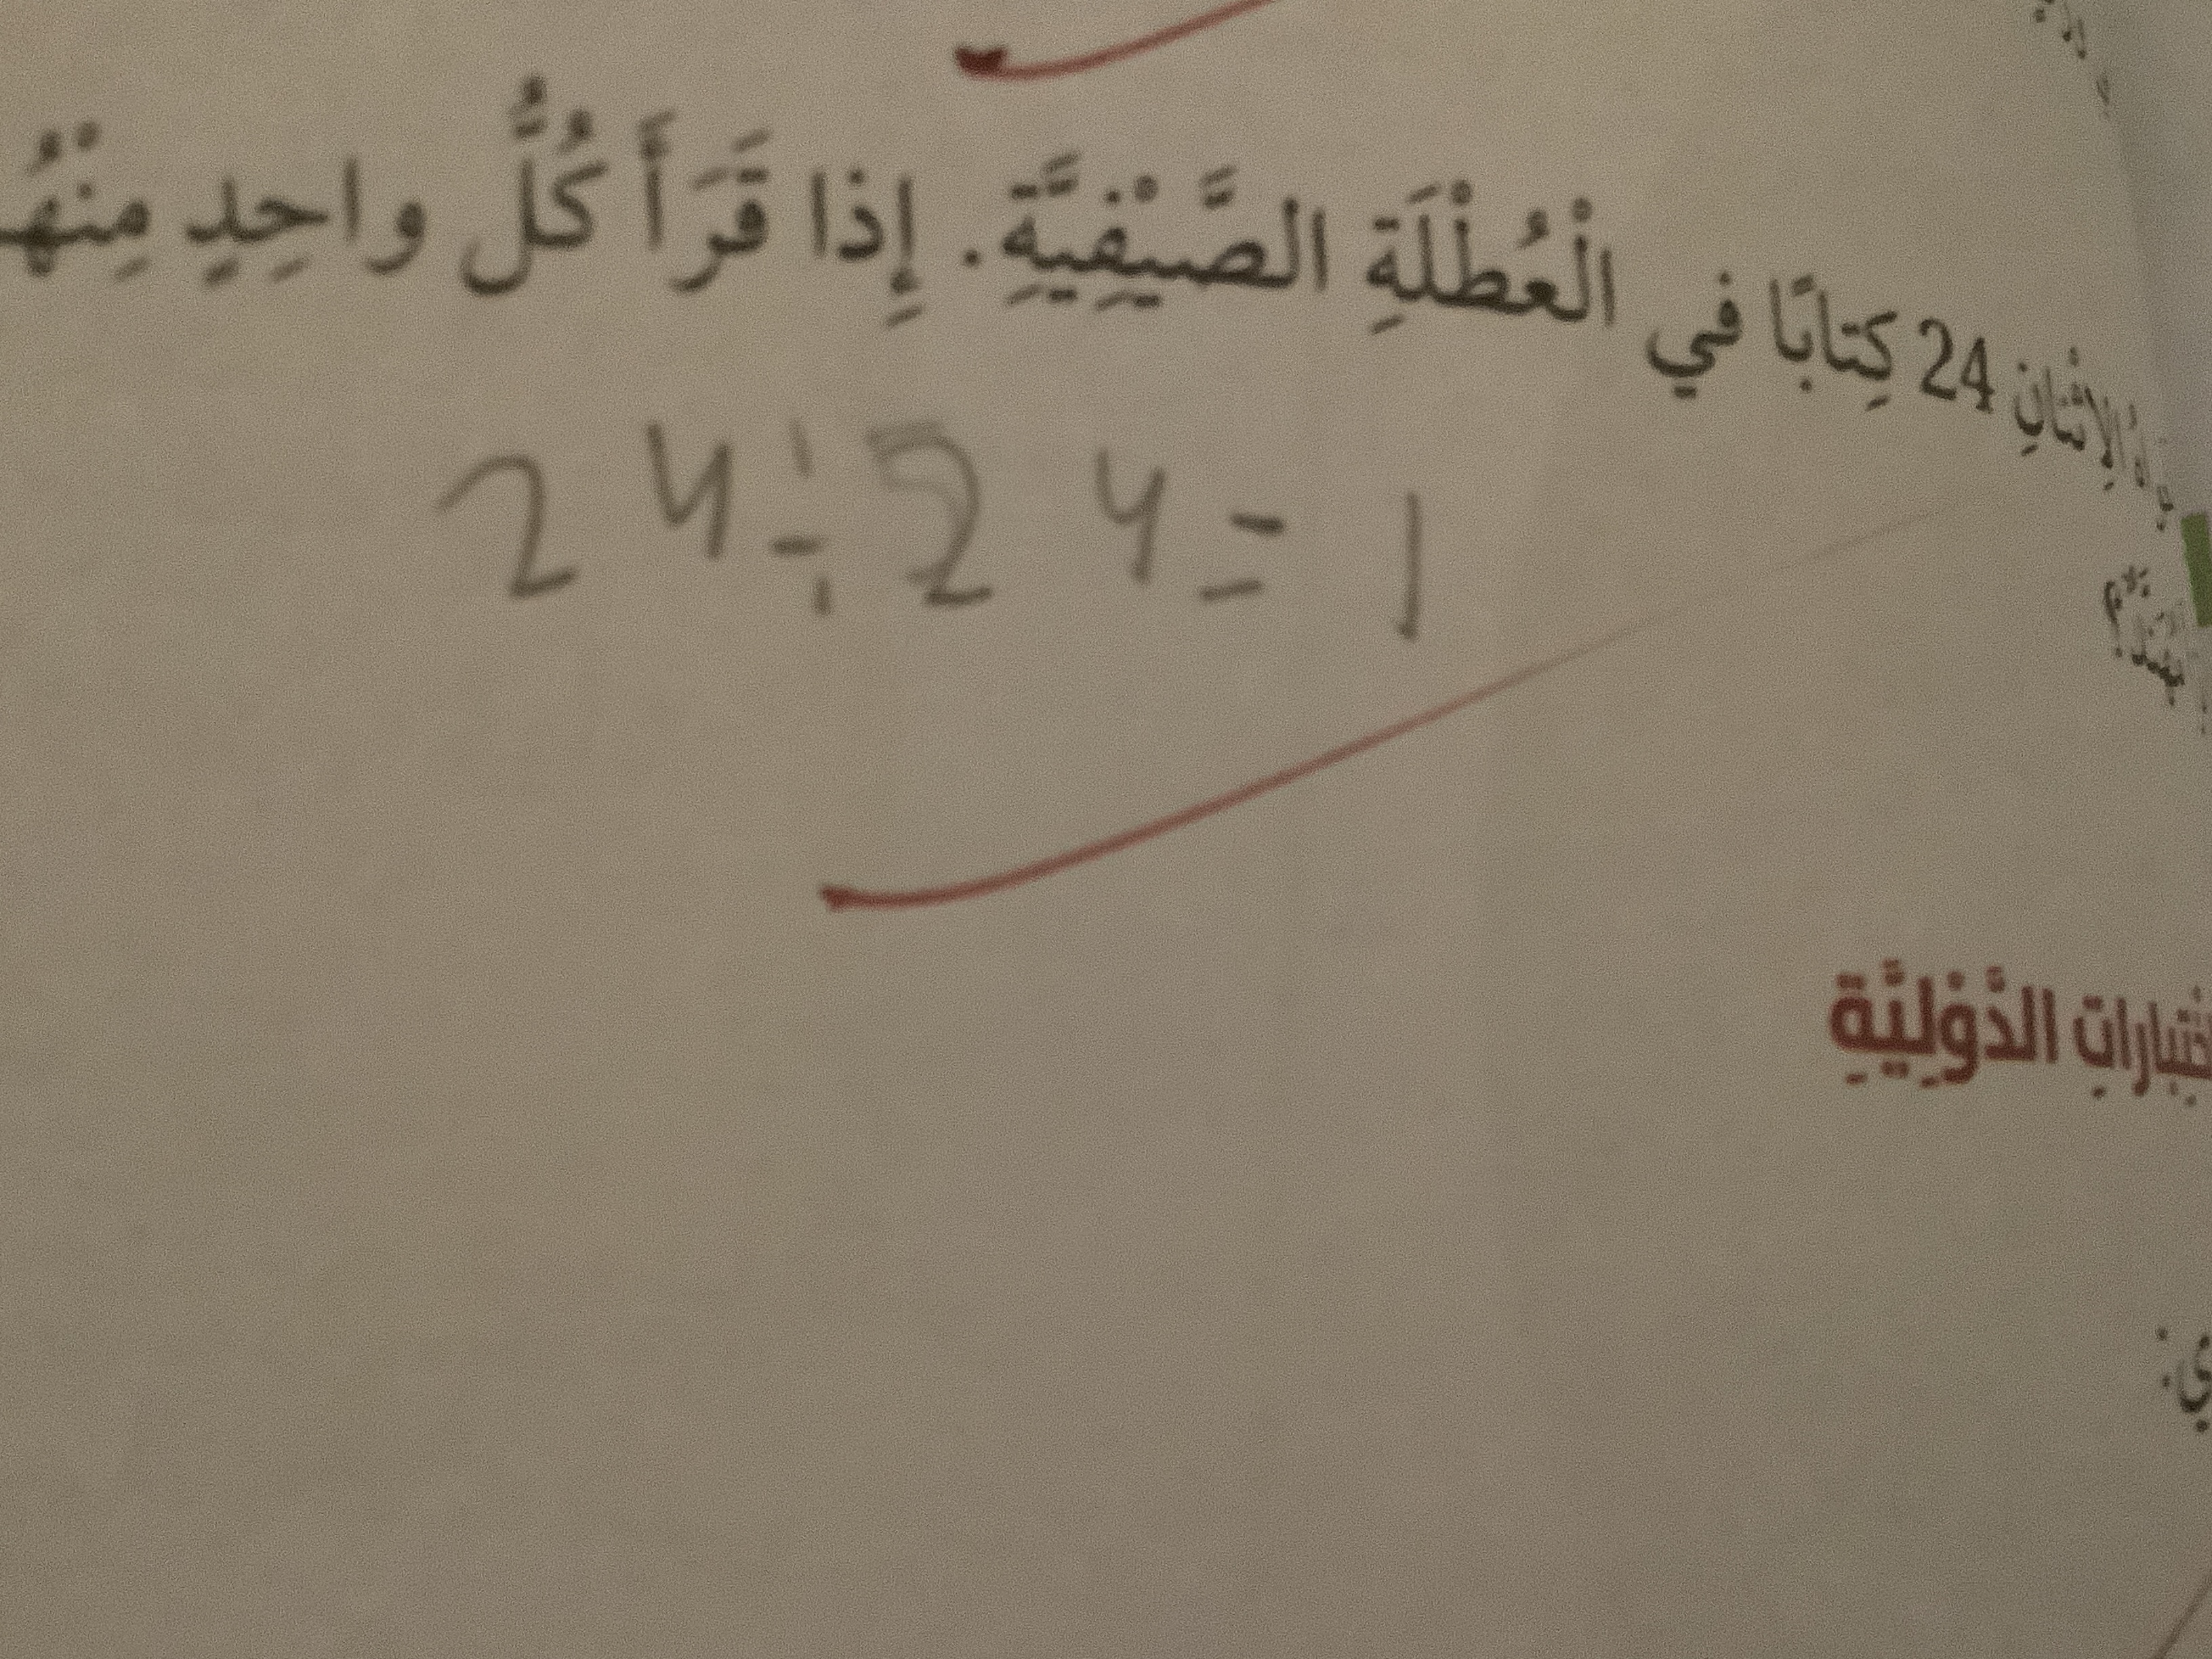 الِاثْنانِ 24 كِتابًا في الْعُطْلَةِ الصَّيْفِيَّةِ. إِذا قَرَأَ كُلُّ واحِدٍ مِنْهُ
24 ÷ 24 = 1
الدَّوْلِيَّةِ